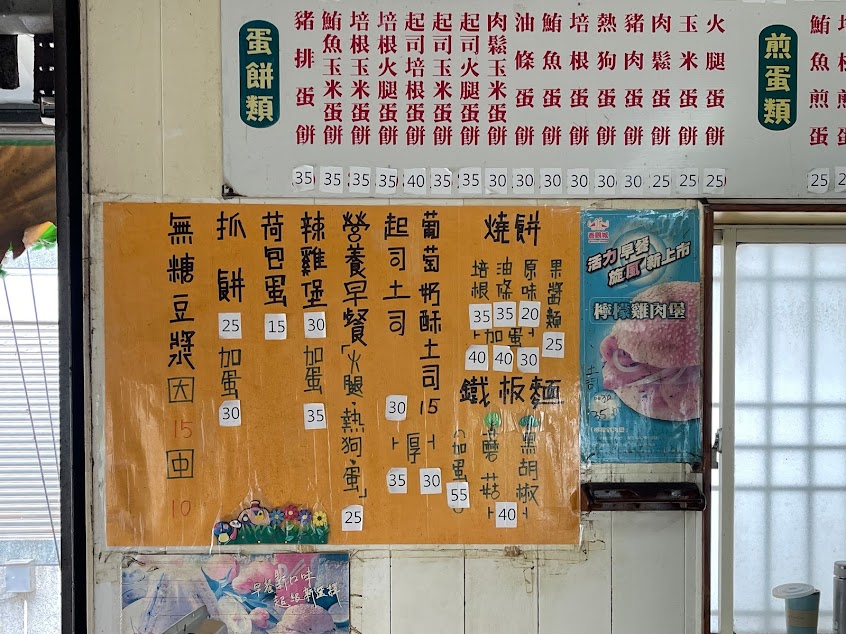 蛋餅類
豬排蛋餅 35
鮪魚玉米蛋餅 35
培根玉米蛋餅 35
培根火腿蛋餅 35
起司培根蛋餅 40
起司玉米蛋餅 35
起司火腿蛋餅 35
肉鬆玉米蛋餅 30
油條蛋餅 30
鮪魚蛋餅 30
培根蛋餅 30
熱狗蛋餅 30
豬肉蛋餅 30
肉鬆蛋餅 25
玉米蛋餅 25
火腿蛋餅 25
煎蛋類
鮪魚煎蛋 25
燒餅
果醬類 25
原味 20
油條 35
培根 35
加蛋
30
40
40
鐵板麵
黑胡椒
蘑菇
40
(加蛋) 55
葡萄奶酥土司 15
起司土司 30
厚
30
35
營養早餐「火腿、熱狗、蛋」 25
辣雞堡 30
加蛋 35
荷包蛋 15
抓餅 25
加蛋 30
無糖豆漿 大 15 中 10
活力早餐
旋風新上市
檸檬雞肉堡
35
早餐新口味
超級新選擇